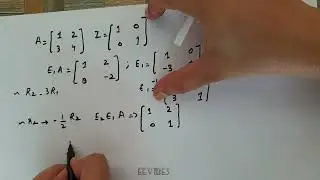 A = [1 2; 3 4] I = [1 0; 0 1]
E₁A = [1 2; 0 -2] ; E₁ = [1 0; -3
~ R₂ - 3R₁ E₁ 3 1]
~ R₂ → -1/2 R₂ E₂E₁A => [1 2; 0 1]